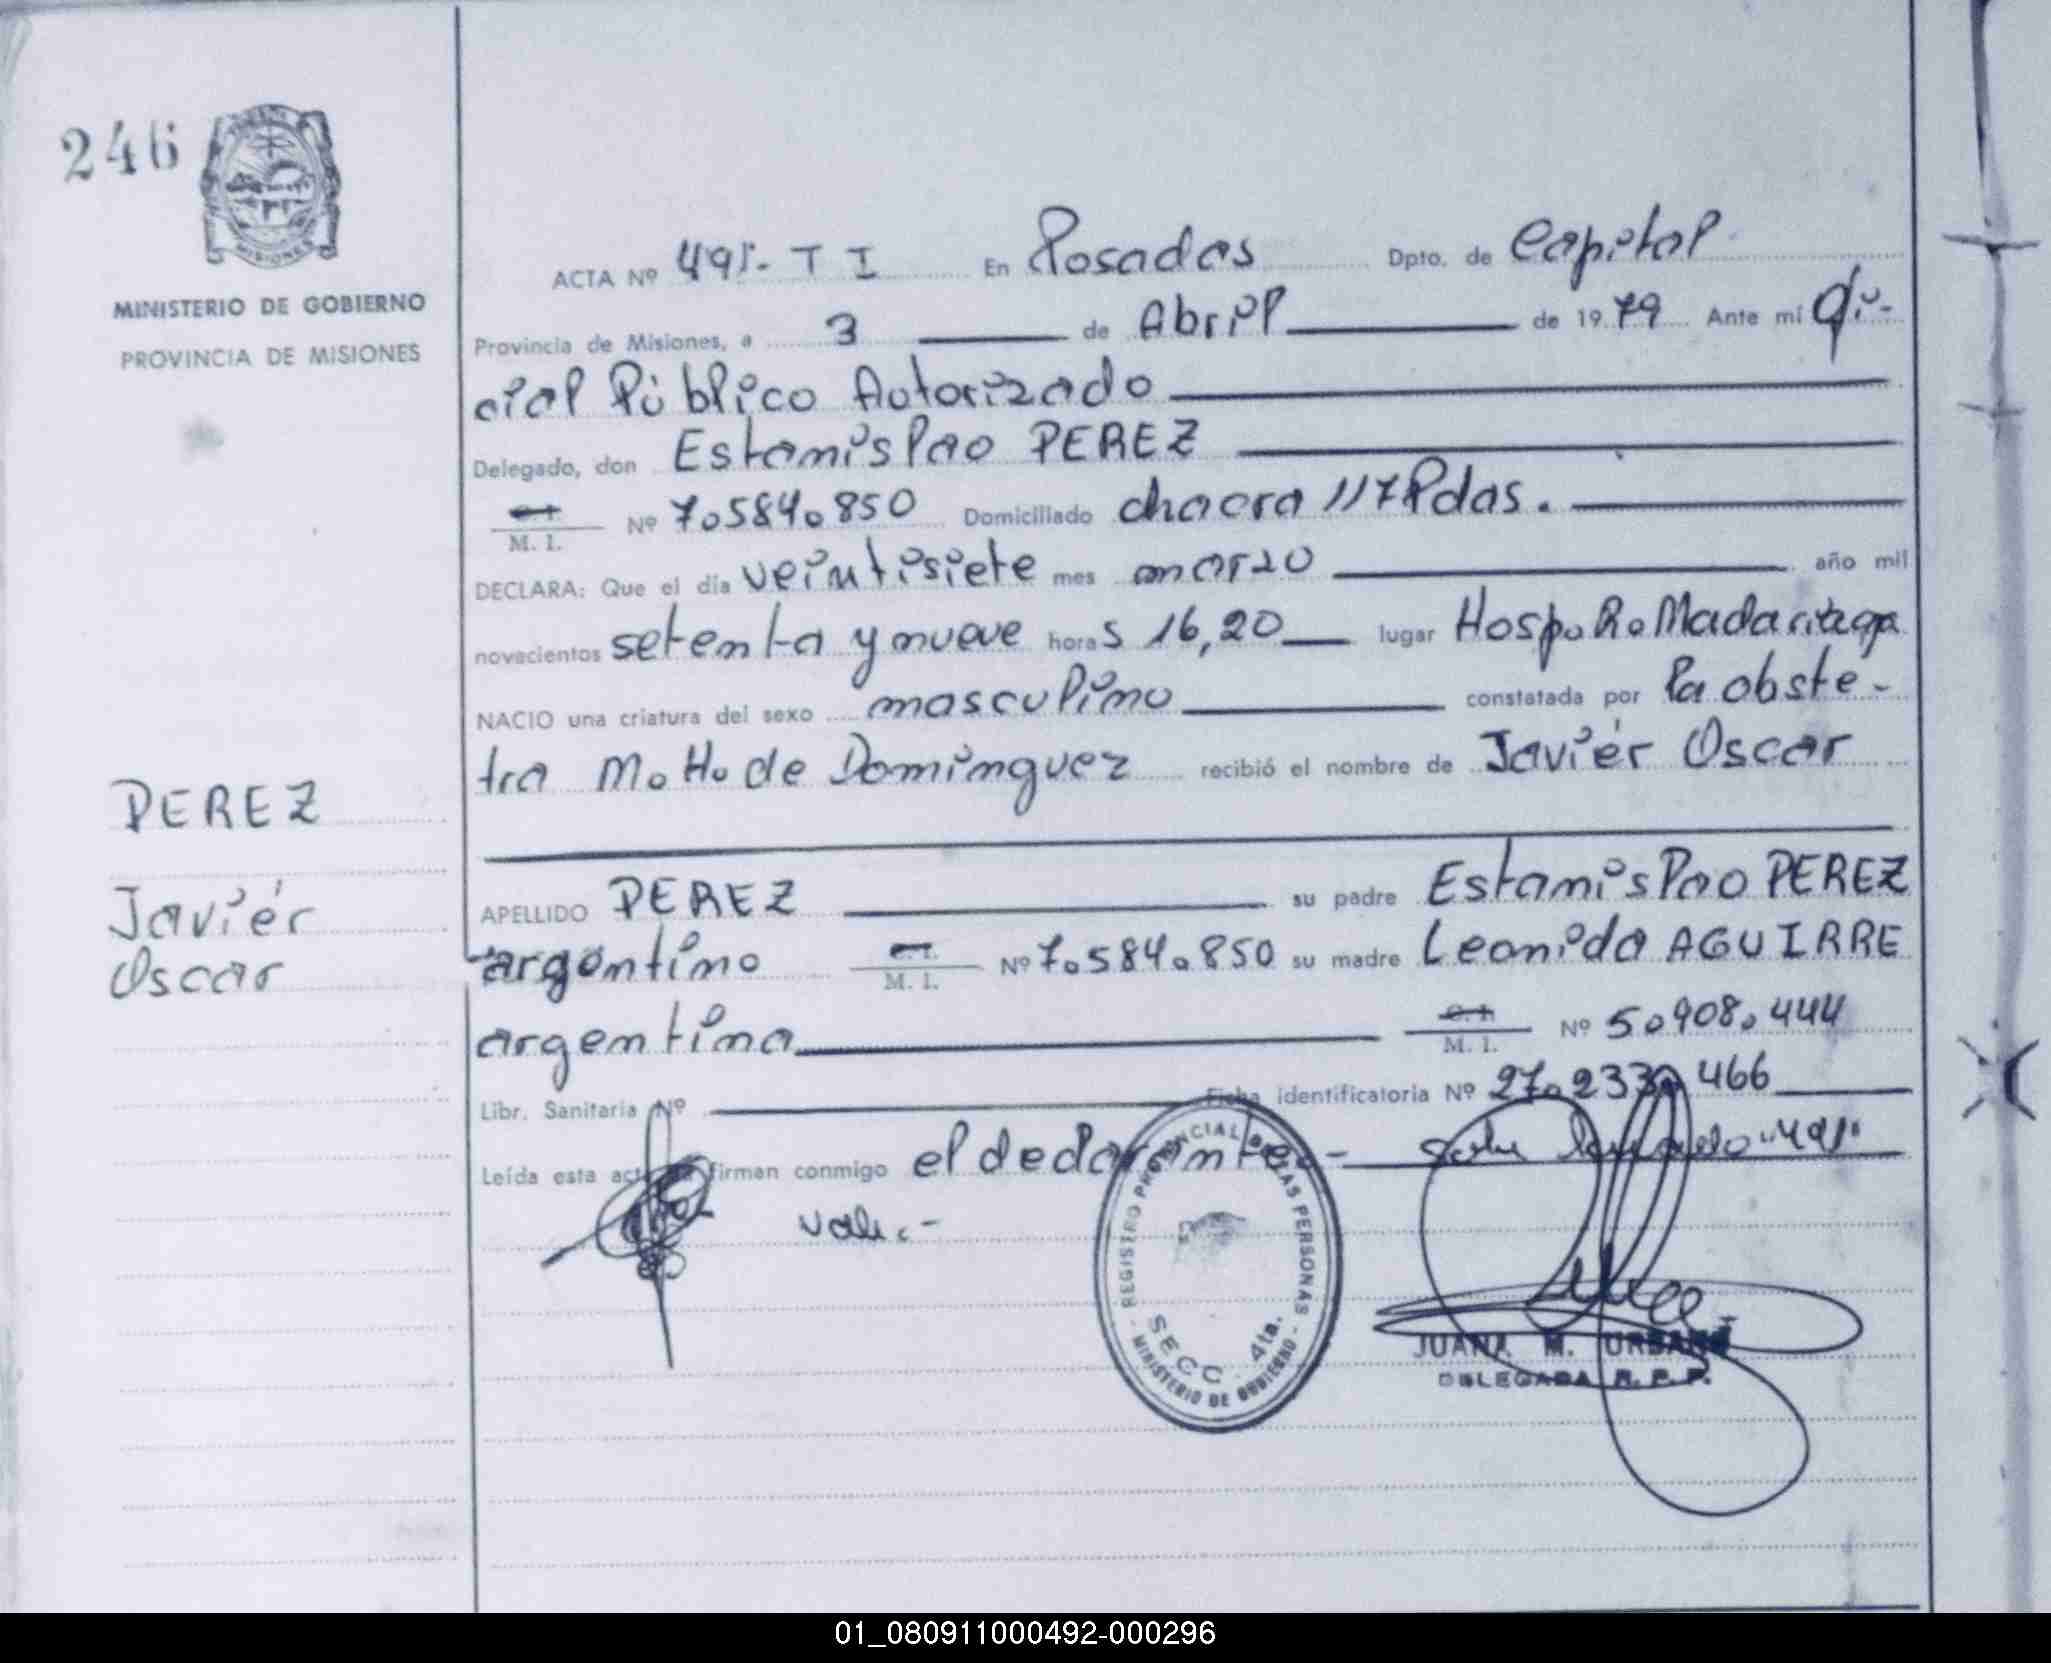 246
MISIONES
MINISTERIO DE GOBIERNO
PROVINCIA DE MISIONES
PEREZ
Javiér
Oscar
ACTA Nº 491.- T I En Posadas Dpto. de Capital
Provincia de Misiones, a 3 de Abril de 1979 Ante mi Ofi-
cial Público Autorizado
Delegado, don Estanislao PEREZ
C.I. M. I. Nº 7.584.850 Domiciliado chacra 117 Pdas.
DECLARA: Que el día veintisiete mes marzo año mil
novecientos setenta y nueve horas 16,20 lugar Hosp. R. Madariaga
NACIO una criatura del sexo masculino constatada por la obste-
tra M. H. de Dominguez recibió el nombre de Javiér Oscar
APELLIDO PEREZ su padre Estanislao PEREZ
argentino C.I. M. I. Nº 7.584.850 su madre Leonida AGUIRRE
argentina C.I. M. I. Nº 5.908.444
Libr. Sanitaria Nº Ficha identificatoria Nº 27.233.466
Leída esta acta firman conmigo el declarante.- "491"
Vale.-
REGISTRO PROVINCIAL DE LAS PERSONAS
SECC. 4ta.
- MINISTERIO DE GOBIERNO -
JUANA M. URBANO
DELEGADA R. P. P.
01_080911000492-000296